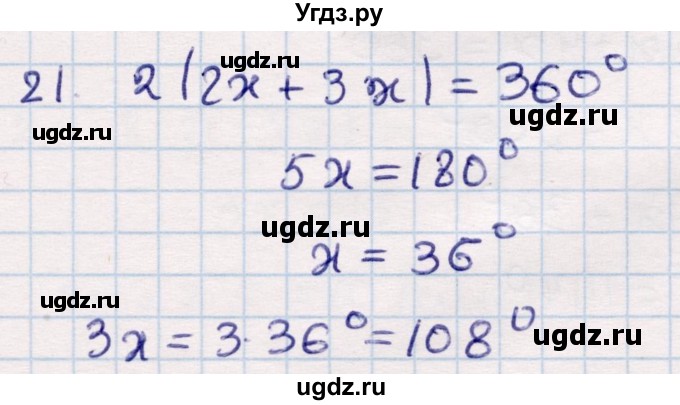 Угдз.ру
ugdz.ru
21. 2(2x + 3x) = 360°
ugdz.ru ugdz.ru
5x = 180°
ugdz.ru ugdz.ru
x = 36°
ugdz.ru
3x = 3·36° = 108°
ugdz.ru
ugdz.ru